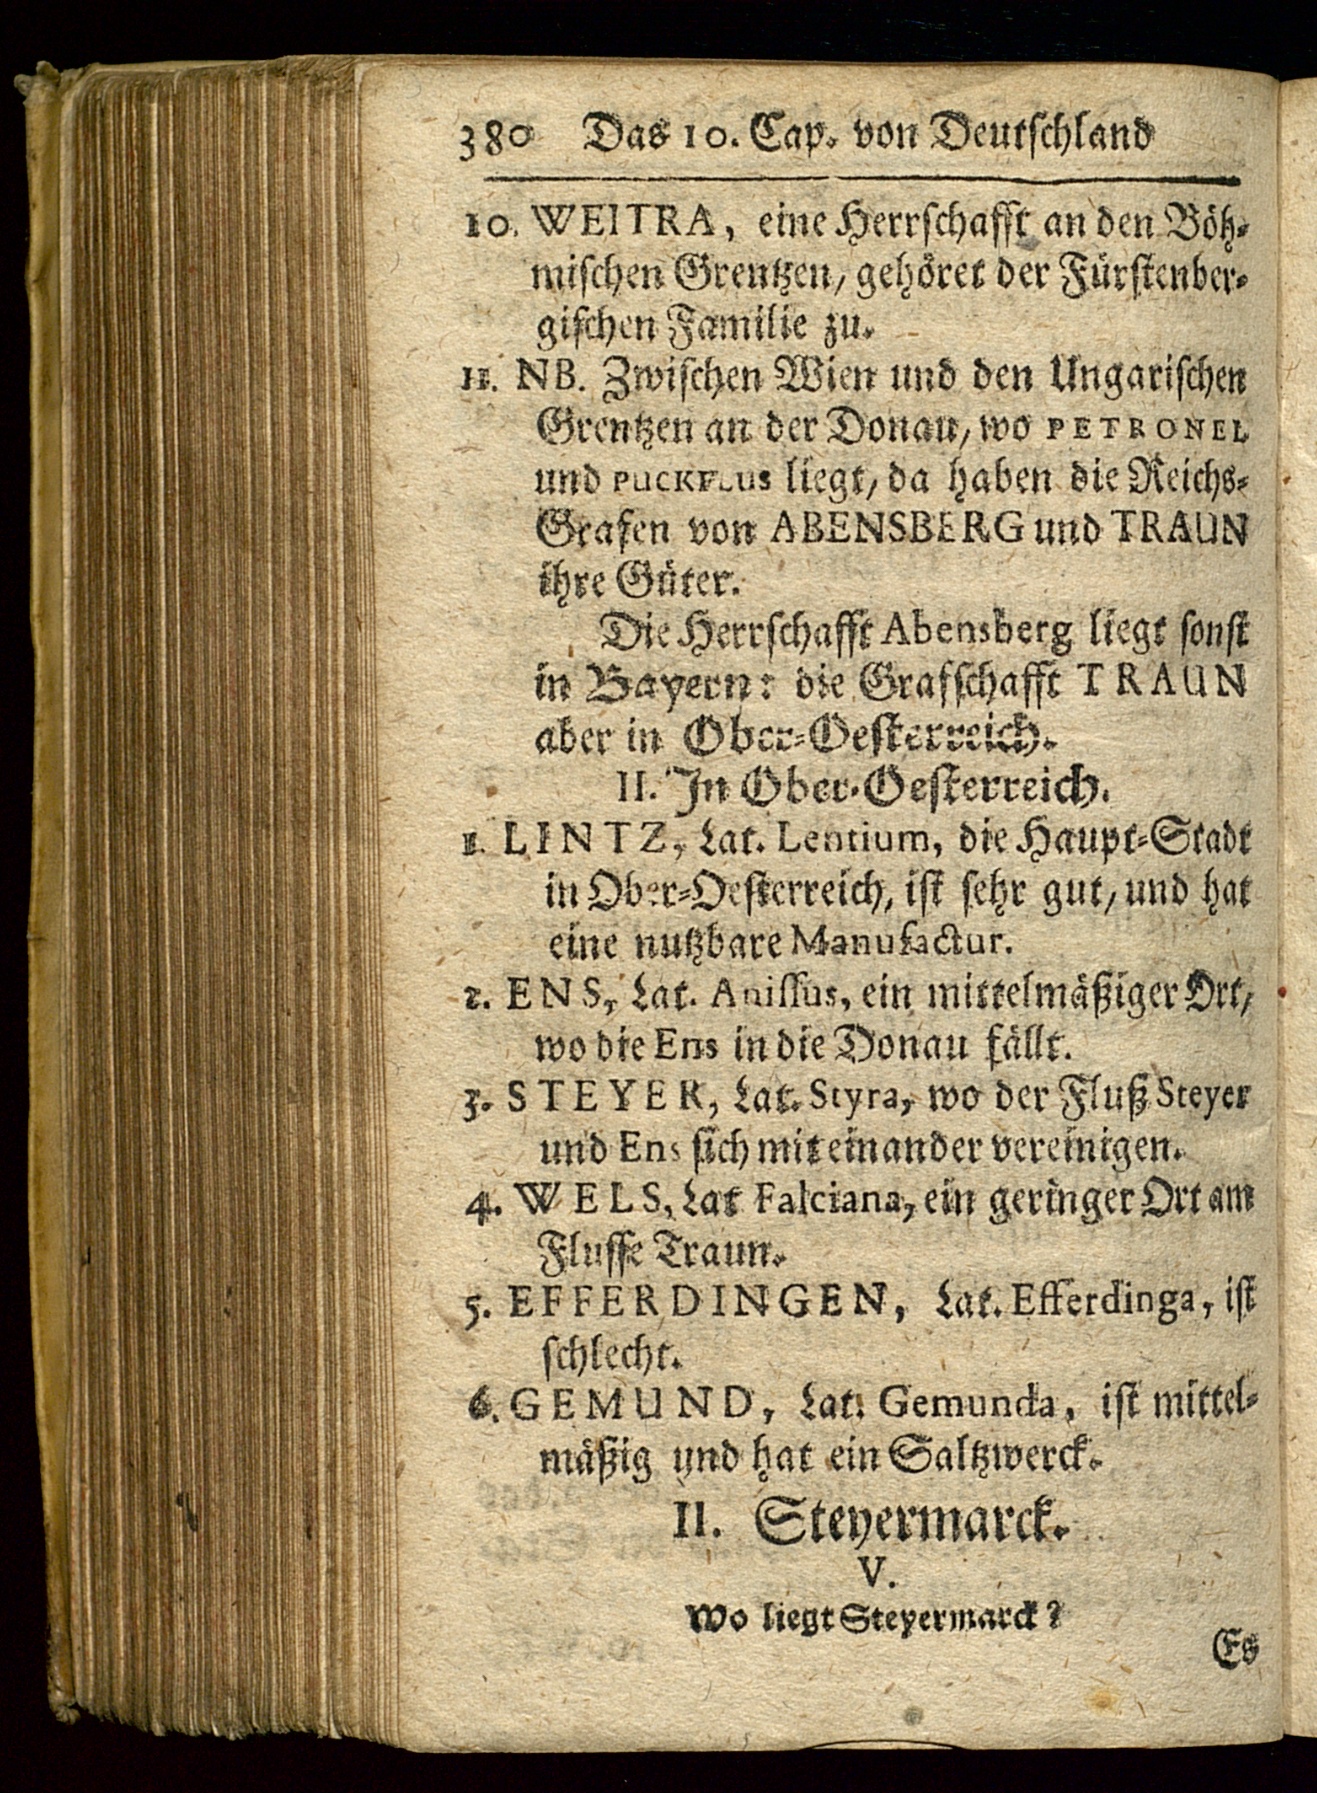 380 Das 10. Cap. von Deutschland
10. WEITRA, eine Herrschafft an den Böh-
mischen Grentzen, gehöret der Fürstenber-
gischen Familie zu.
11. NB. Zwischen Wien und den Ungarischen
Grentzen an der Donau, wo PETRONEL
und PUCKFLUS liegt, da haben die Reichs-
Grafen von ABENSBERG und TRAUN
ihre Güter.
Die Herrschafft Abensberg liegt sonst
in Bayern: die Grafschafft TRAUN
aber in Ober-Oesterreich.
II. In Ober-Oesterreich.
1. LINTZ, Lat. Lentium, die Haupt-Stadt
in Ober-Oesterreich, ist sehr gut, und hat
eine nutzbare Manufactur.
2. ENS, Lat. Anissus, ein mittelmäßiger Ort,
wo die Ens in die Donau fällt.
3. STEYER, Lat. Styra, wo der Fluß Steyer
und Ens sich mit einander vereinigen.
4. WELS, Lat Falciana, ein geringer Ort am
Flusse Traun.
5. EFFERDINGEN, Lat. Efferdinga, ist
schlecht.
6. GEMUND, Lat. Gemunda, ist mittel-
mäßig und hat ein Saltzwerck.
II. Steyermarck.
V.
Wo liegt Steyermarck?
Es